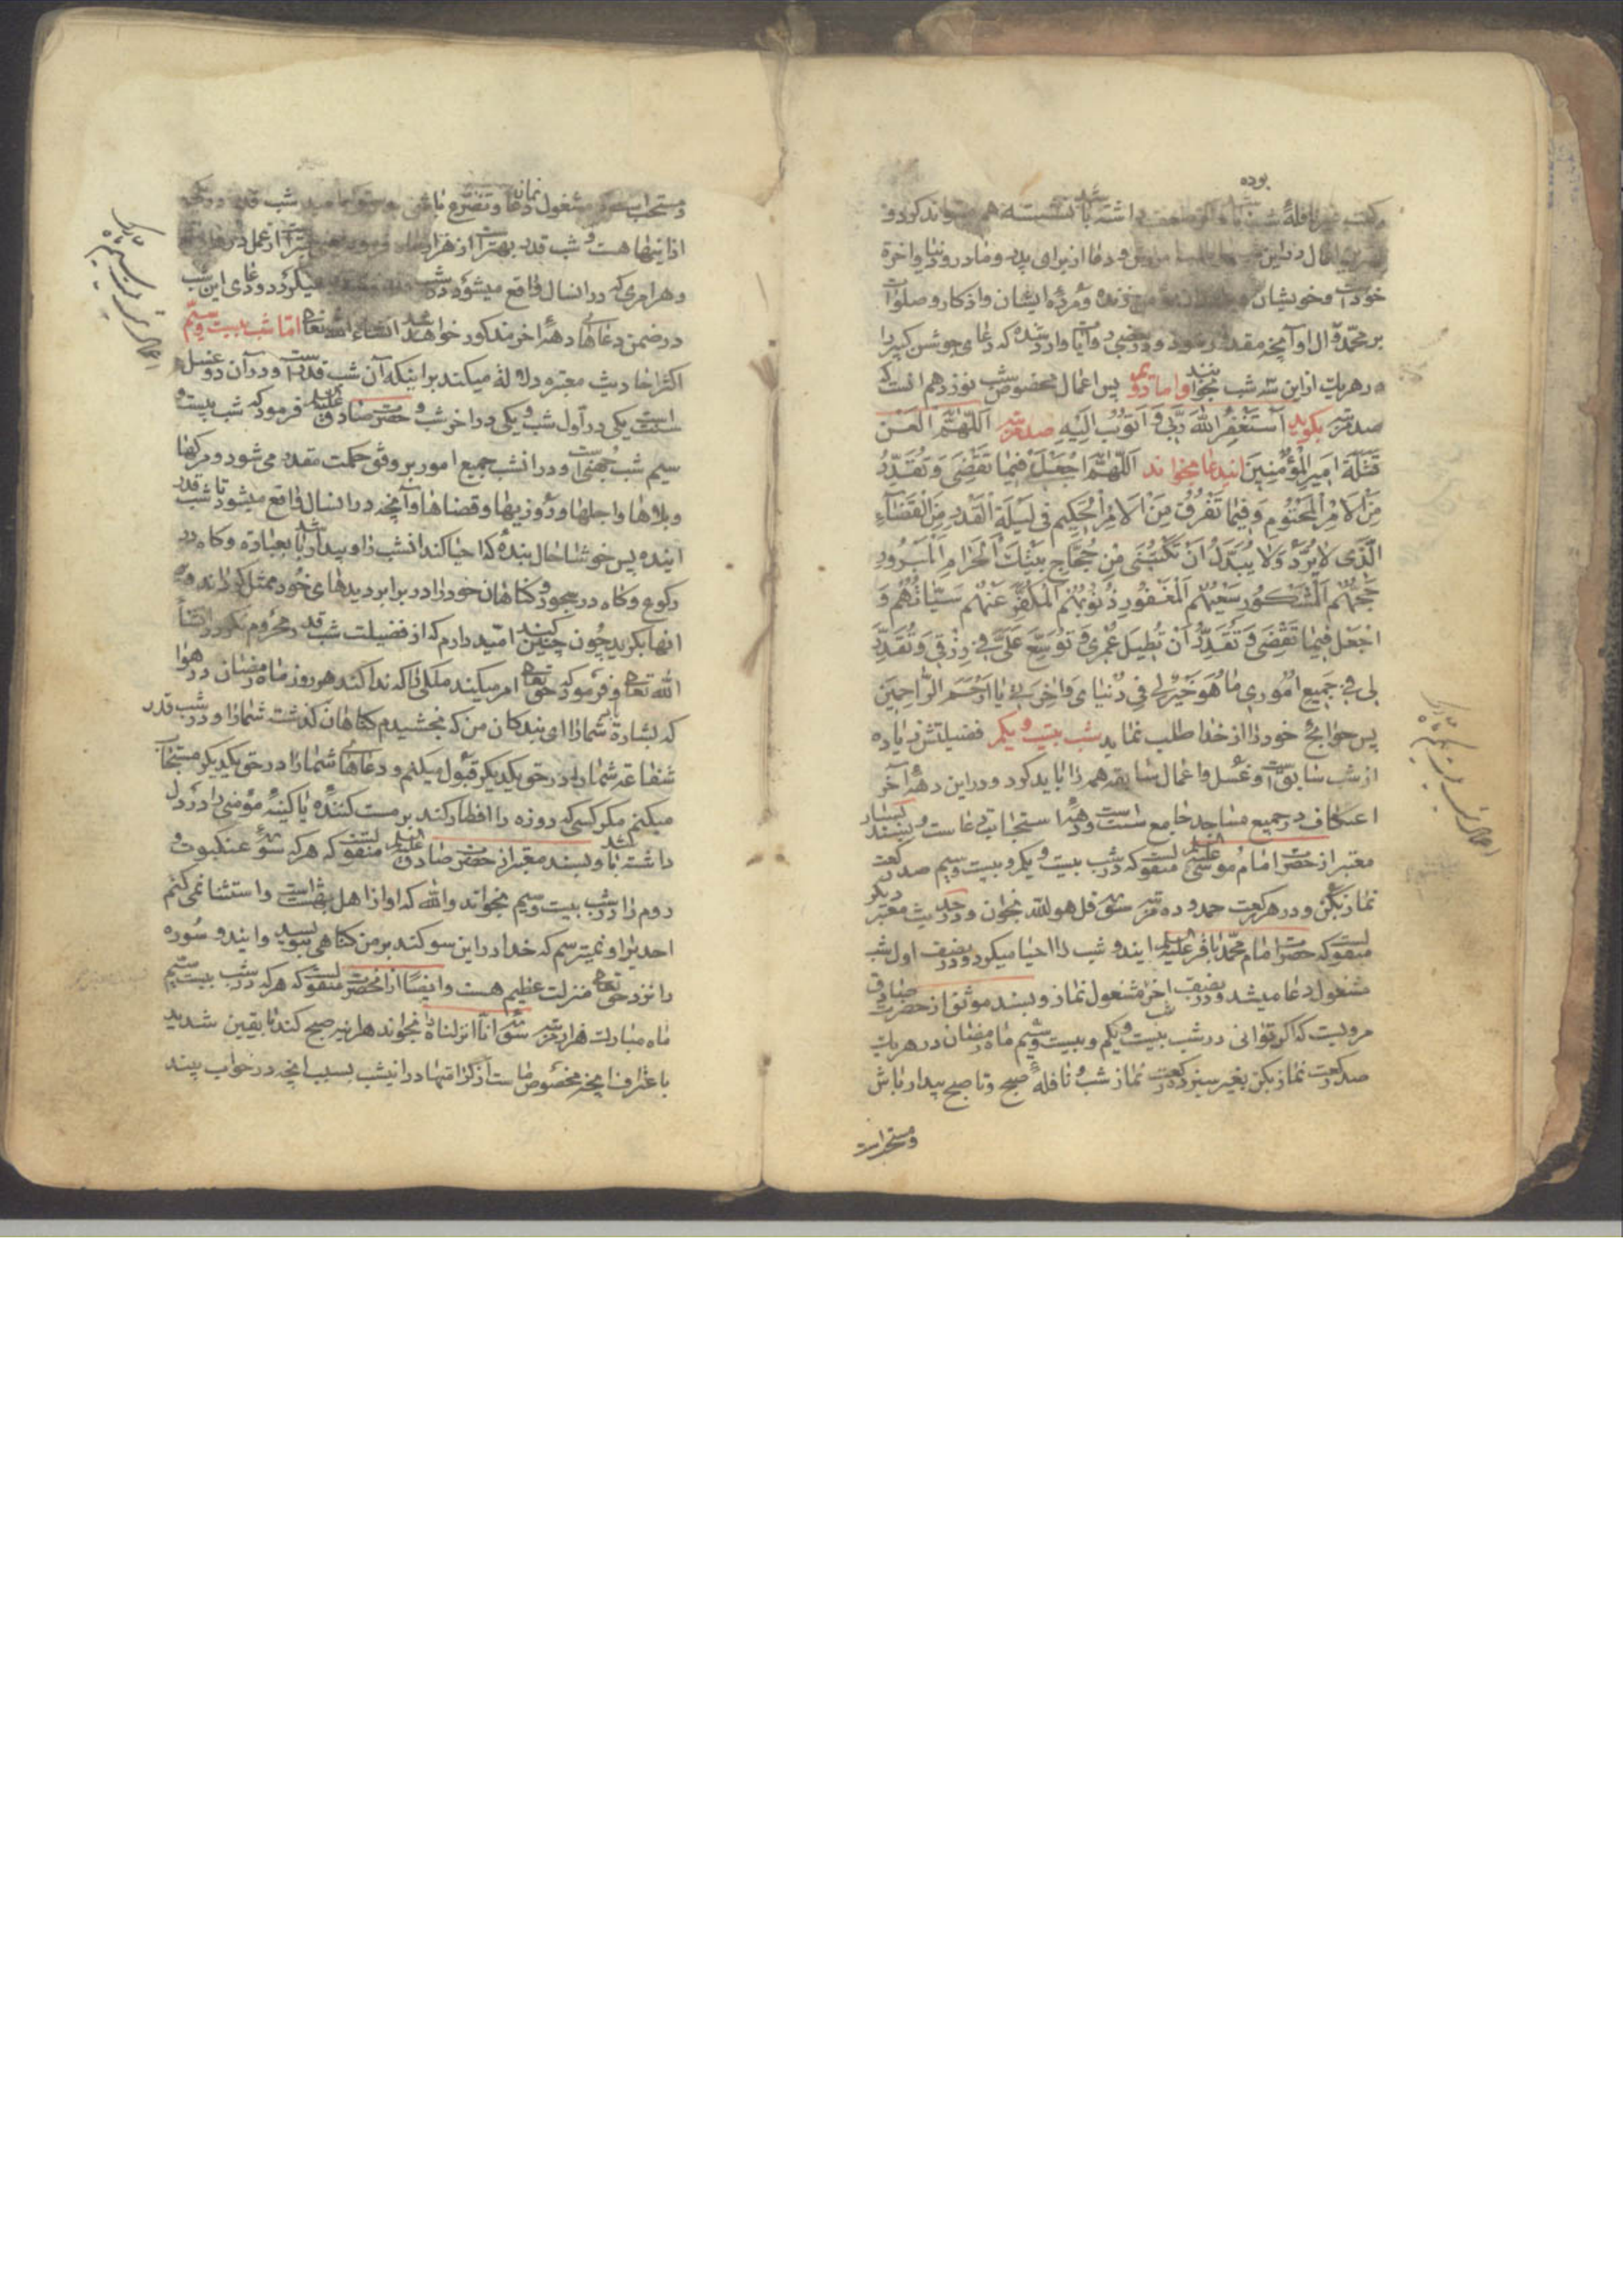 بوده
ركعت غير نافلهٔ شب باشد و اگر ضعف داشته باشد نشسته هم میتواند كرد و
اعمال در این دعا از برای پدر و مادر و دنیا و اخرة
خود است و خویشان زنده و مردهٔ ایشان و اذکار و صلوات
بر محمد و آل او آنچه مقدور شود و در بعضی روایات وارد شده که دعای جوشن کبیر را
در هر یك از این سه شب بخوانند و اما دویم پس اعمال مخصوص شب نوزدهم انست که
صد مرتبه بگوید اَسْتَغْفِرُ اللهَ رَبّی وَ اَتُوبُ اِلَیْهِ صد مرتبه اَللّهُمَّ الْعَنْ
قَتَلَةَ اَمیرِ الْمُؤْمِنینَ ایندعا بخواند اَللّهُمَّ اجْعَلْ فیما تَقْضی وَ تُقَدِّرُ
مِنَ الْاَمْرِ الْمَحْتُومِ وَ فیما تَفْرُقُ مِنَ الْاَمْرِ الْحَکیمِ فی لَیْلَةِ الْقَدْرِ مِنَ الْقَضاءِ
الَّذی لا یُرَدُّ وَ لا یُبَدَّلُ اَنْ تَکْتُبَنی مِنْ حُجّاجِ بَیْتِكَ الْحَرامِ الْمَبْرُورِ
حَجُّهُمُ الْمَشْکُورِ سَعْیُهُمُ الْمَغْفُورِ ذُنُوبُهُمُ الْمُکَفَّرِ عَنْهُمْ سَیِّئاتُهُمْ وَ
اجْعَلْ فیما تَقْضی وَ تُقَدِّرُ اَنْ تُطیلَ عُمْری وَ تُوَسِّعَ عَلَیَّ فی رِزْقی وَ تُقَدِّرَ
لی فی جَمیعِ اُمُوری ما هُوَ خَیْرٌ لی فی دُنْیایَ وَ اخِرَتی یا اَرْحَمَ الرّاحِمینَ
پس حوایج خود را از خدا طلب نماید شب بیست و یکم فضیلتش زیاده
از شب سابق است و غسل و اعمال سابقه همه را باید کرد و در این دههٔ آخر
اعتکاف در جمیع مساجد جامع سنت است و دههٔ استجابت دعاست و بسند بسیار
معتبر از حضرت امام موسی علیه السلم منقولست که در شب بیست و یکم و بیست و سیم صد رکعت
نماز بکن و در هر رکعت حمد و ده مرتبه سوره قل هو الله بخوان و در حدیث معتبر دیگر
منقولست که حضرت امام محمد باقر علیه السلم ایندو شب را احیا میکرد و در نصف اول شب
مشغول دعا میشد و در نصف اخر شب مشغول نماز و بسند موثق از حضرت صادق
مرویست که اگر توانی در شب بیست و یکم و بیست و سیم ماه رمضان در هر یك
صد رکعت نماز بکن بغیر سیزده رکعت نماز شب و نافلهٔ صبح و تا صبح بیدار باش
و مستحب است
اعمال شب بیست و یکم
و مستحب است که مشغول نماز و دعا و تضرع باشی شب قدر در یکی
از اینها هست و شب قدر بهتر است از هزار ماه بهتر است از عمل در هزار ماه
و هر امری که در انسال واقع میشود در شب میگردد و دعای این شب
در ضمن دعاهای دههٔ اخر مذکور خواهد شد انشاء الله تعالی اما شب بیست و سیم
اکثر احادیث معتبره دلالة میکند بر اینکه آن شب قدر است و در آن دو غسل
سنت است یکی در اول شب و یکی در اخر شب و حضرت صادق علیه السلم فرمود که شب بیست و
سیم شب جهنی است و در انشب جمیع امور بر وفق حکمت مقدر می شود و مرکها
و بلاها و اجلها و روزیها و قضاها و آنچه در انسال واقع میشود تا شب قدر
اینده پس خوشا حال بندهٔ که احیا کند انشب را و بیدار باشد بعبادة و کاه در
رکوع و کاه در سجود و کناهان خود را در برابر دیدهای خود ممثل کرداند و بر
انها بکرید چون چنین کند امید دارم که از فضیلت شب قدر محروم نکردد انشأ
الله تعالی و فرمود که حق تعالی امر میکند ملکی را که ندا کند هر روز ماه رمضان در هوا
که بشارة باد شما را ای بندکان من که بخشیدم کناهان کذشته شما را و در شب قدر
شفاعة شما را در حق یکدیکر قبول میکنم و دعاهای شما را در حق یکدیکر مستجاب
میکنم مکر کسی که روزه را افطار کند بر مست کننده یا کینهٔ مؤمنی را در دل
داشته باشد و بسند معتبر از حضرت صادق علیه السلم منقولست که هر که سورهٔ عنکبوت و
روم را در شب بیست و سیم بخواند والله که او از اهل بهشت است و استثنا نمی کنم
احدیرا و نمیترسم که خدا در این سوکند بر من کناهی بنویسد و ایندو سوره
را نزد حق تعالی منزلت عظیم هست و ایضا از انحضرت منقولست که هر که در شب بیست و سیم
ماه مبارك هزار مرتبه سوره انا انزلناه را بخواند هراینه صبح کند با یقین شدید
باعتراف انچه مخصوص ماست از کرامتها در انیشب بسبب انچه در خواب بیند
اعمال شب بیست و سیم